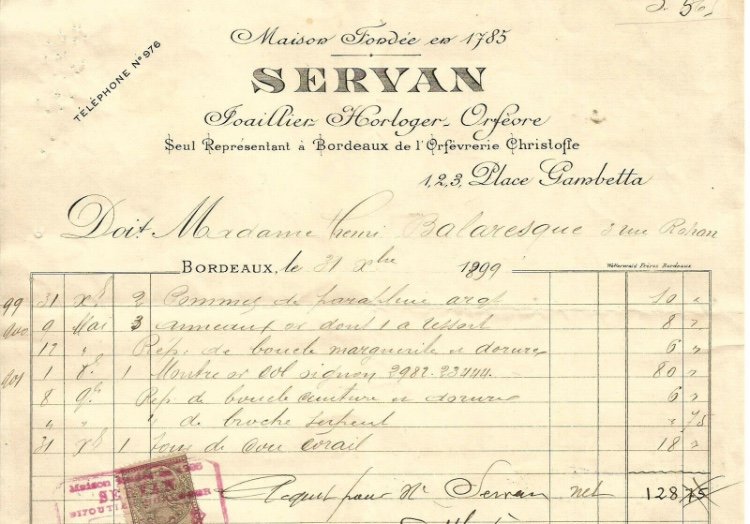 Maison Fondée en 1785
TÉLÉPHONE Nº 976
SERVAN
Joaillier-Horloger-Orfèvre
Seul Représentant à Bordeaux de l'Orfèvrerie Christofle
1,2,3, Place Gambetta
Doit Madame Henri Balaresque 3 rue Rohan
BORDEAUX, le 31 Xbre 1899
Wetterwald Frères Bordeaux
99 31 Xe 2 Pommes de parapluie argt 10 "
900 9 Mai 3 anneaux or dont 1 a ressort 8 "
12 " Rep. de boucle marguerite et dorure 6 "
901 1 1 Montre or 2982.23444 80 "
8 Rep de boucle ceinture et dorure 6 "
" " " de broche serpent " 75
31 Xe 1 de cou corail 18 "
Acquit pour Mr Servan net 128 75
SERVAN